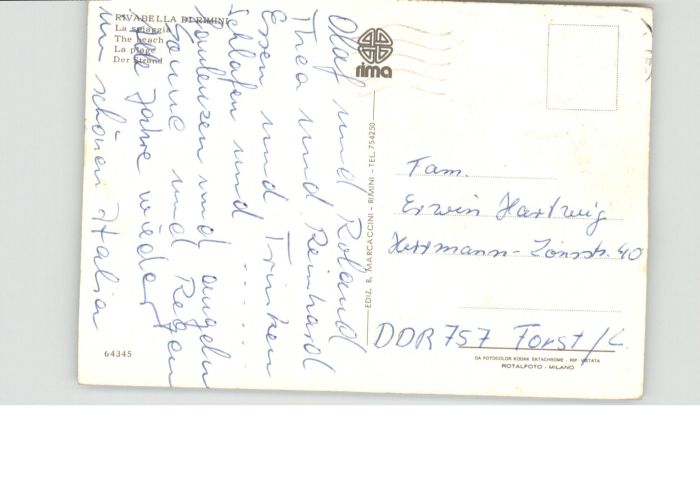 RIVABELLA DI RIMINI
La spiaggia
The beach
La plage
Der Strand
Olaf und Roland
Thea und Reinhard
Essen und Trinken
Schlafen und ......
Faulenzen und angeln
Sonne und Regen
alle Jahre wieder
im schönen Italia
64345
rima
EDIZ. B. MARCACCINI - RIMINI - TEL. 754250
Fam.
Erwin Hartwig
Herrmann-Lönsstr. 40
DDR 757 Forst/L.
DA FOTOCOLOR KODAK EKTACHROME - RIP. VIETATA
ROTALFOTO - MILANO